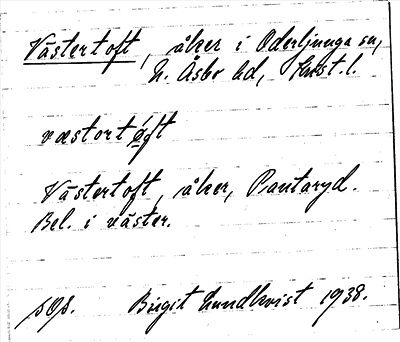 Västertoft, åker i Oderljunga sn,
N. Åsbo hd, Krist. l.
væstortåft
Västertoft, åker, Pantaryd.
Bel. i väster.
Birgit Lundkvist 1938.